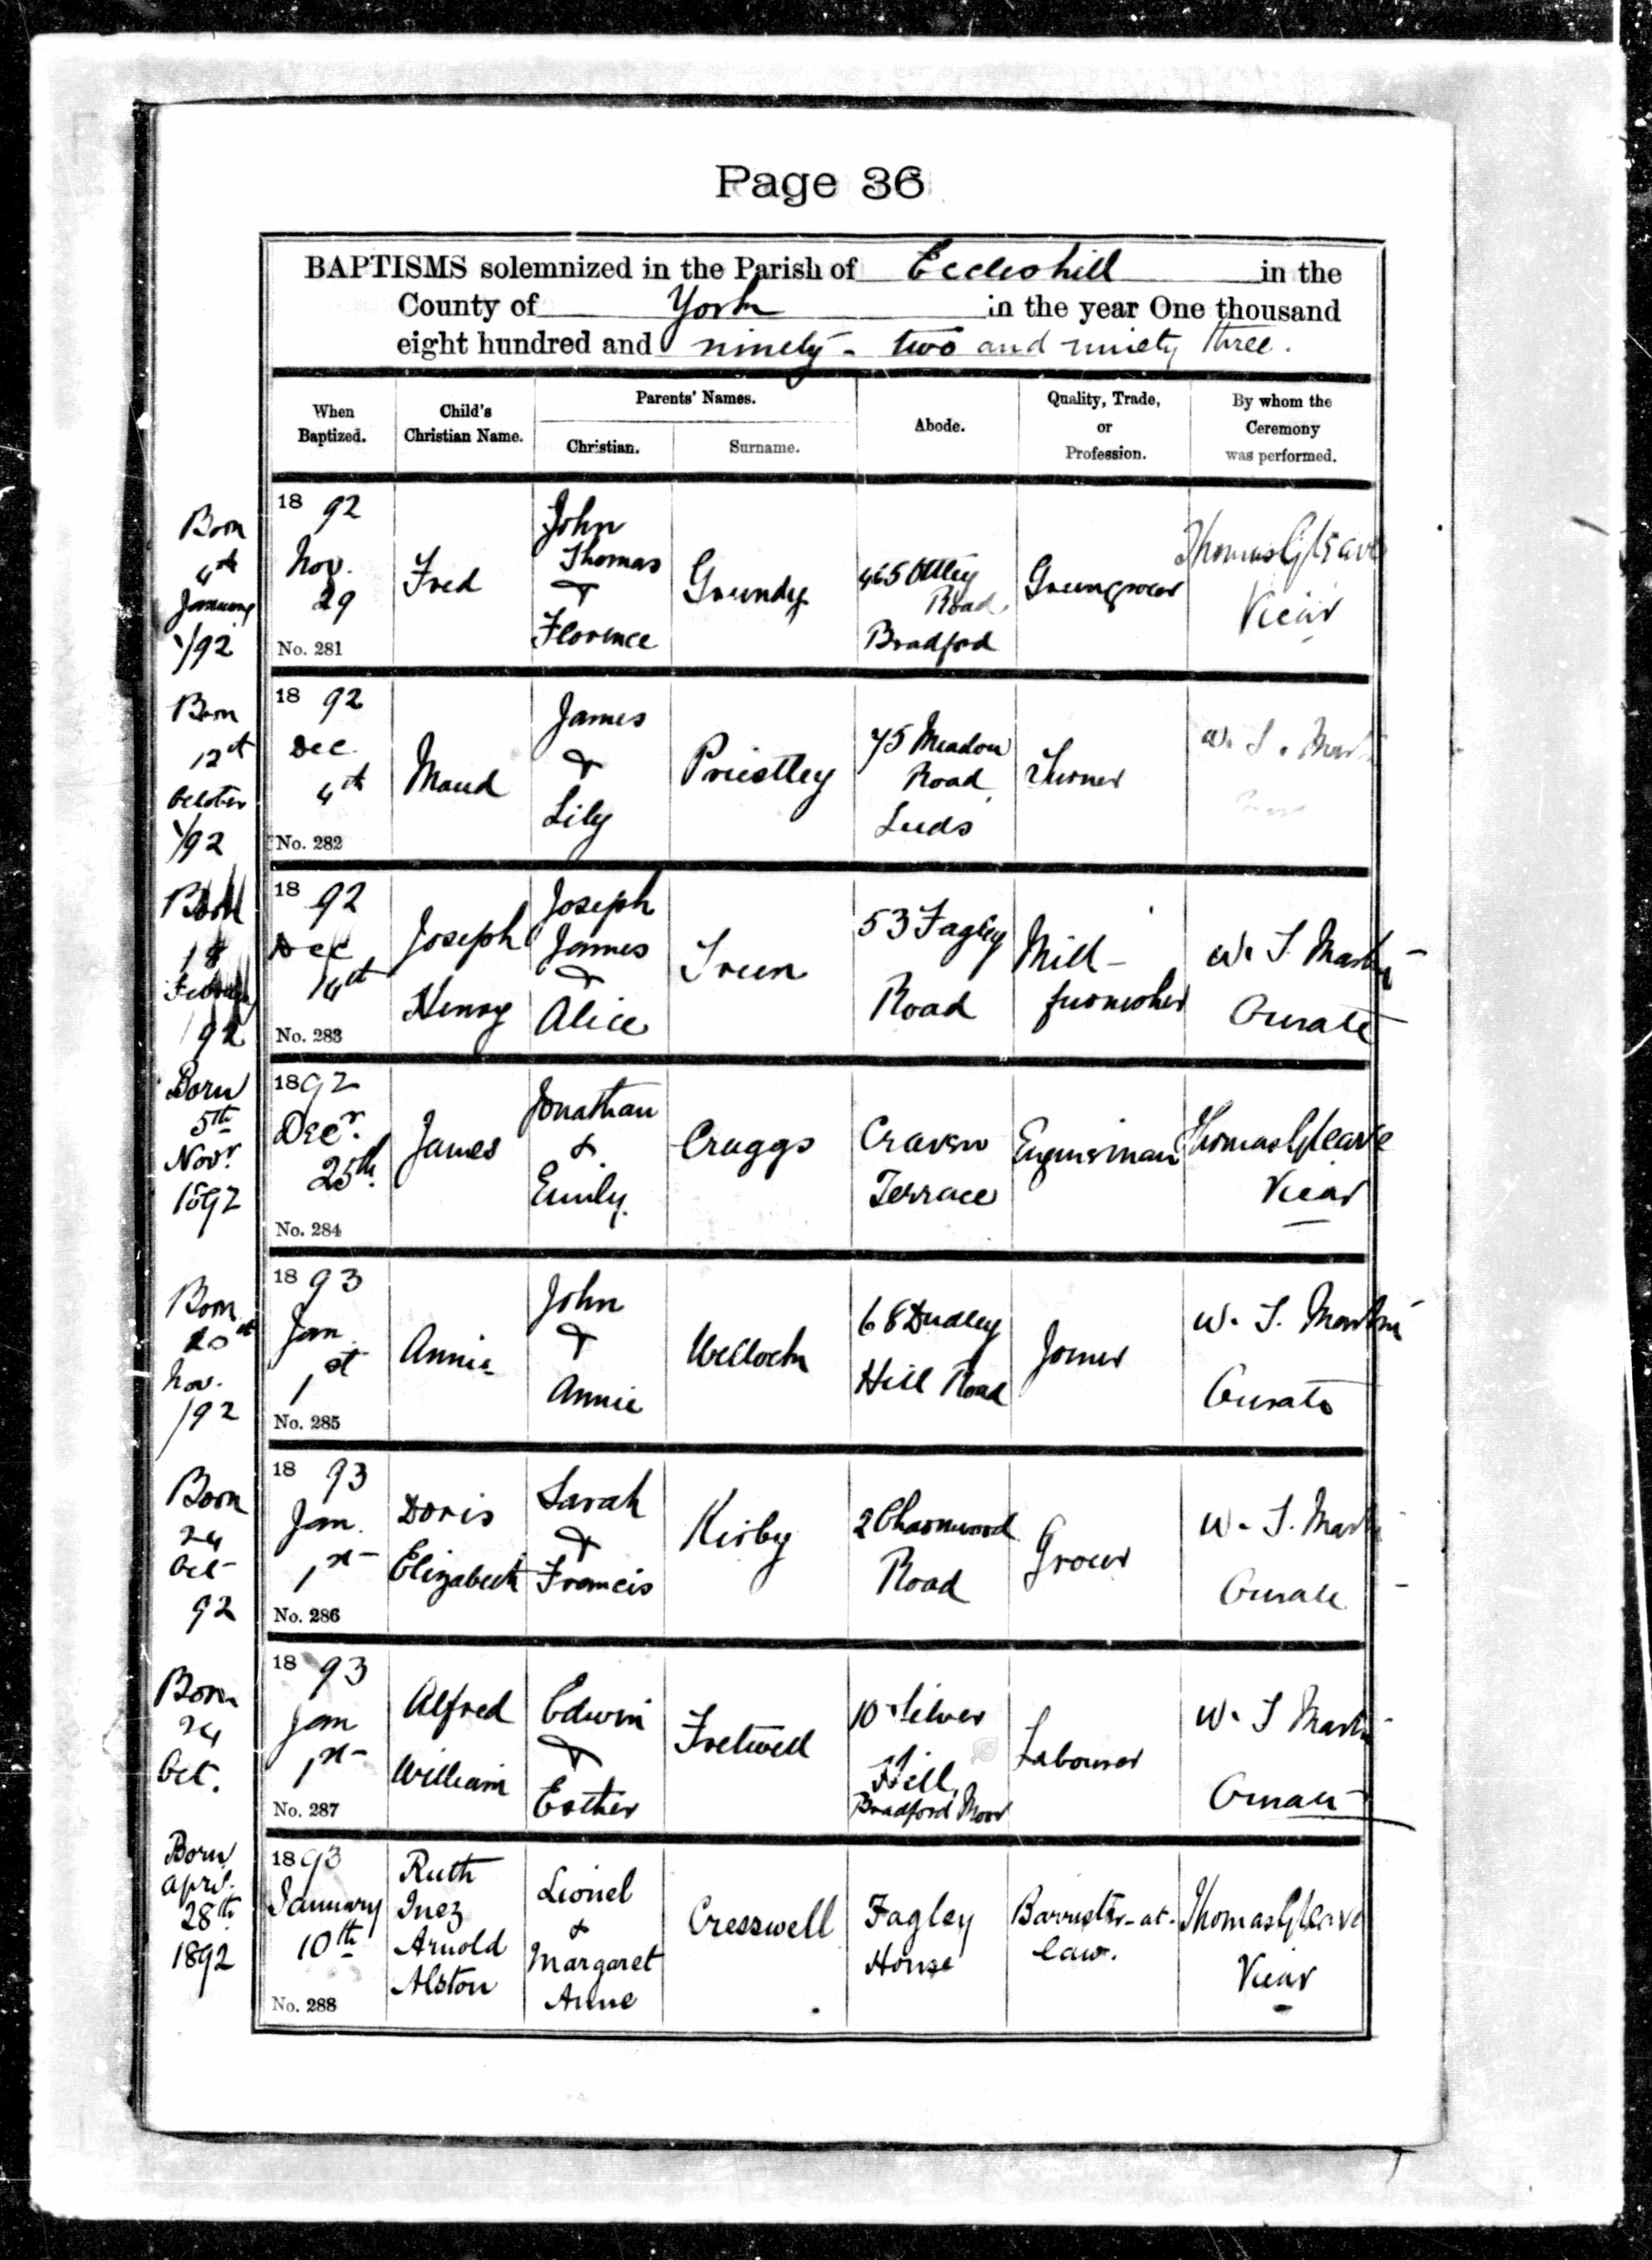 Page 36
BAPTISMS solemnized in the Parish of Eccleshill in the
County of York in the year One thousand
eight hundred and ninety - two and ninety three.
When
Baptized.
Child's
Christian Name.
Parents' Names.
Christian.
Surname.
Abode.
Quality, Trade,
or
Profession.
By whom the
Ceremony
was performed.
Born
4th
January
/92
18 92
Nov.
29
No. 281
Fred
John
Thomas
&
Florence
Grundy
465 Otley
Road
Bradford
Greengrocer
Thomas Gleave
Vicar
Born
12th
October
/92
18 92
Dec.
4th
No. 282
Maud
James
&
Lily
Priestley
75 Meadow
Road
Leeds
Turner
W. T. Martin
Born
18
February
92
18 92
Dec
14th
No. 283
Joseph
Henry
Joseph
James
&
Alice
53 Fagley
Road
Mill-
furnisher
W. T. Martin
Curate
Born
5th
Novr.
1892
1892
Decr.
25th.
No. 284
James
Jonathan
&
Emily.
Craggs
Craven
Terrace
Engineman
Thomas Gleave
Vicar
Born
20th
Nov.
/92
18 93
Jan.
1st
No. 285
Annie
John
&
Annie
Wellock
68 Dudley
Hill Road
Joiner
W. T. Martin
Curate
Born
24
Oct
92
18 93
Jan.
1st
No. 286
Doris
Elizabeth
Sarah
&
Francis
Kirby
2 Charnwood
Road
Grocer
W. T. Martin
Curate
Born
24
Oct.
18 93
Jan
1st
No. 287
Alfred
William
Edwin
&
Esther
Fretwell
10 Silver
Hill
Bradford Moor
Labourer
W. T Martin
Curate
Born
April.
28th
1892
1893
January
10th
No. 288
Ruth
Inez
Arnold
Alston
Lionel
&
Margaret
Anne
Cresswell
Fagley
House
Barrister-at-
law.
Thomas Gleave
Vicar